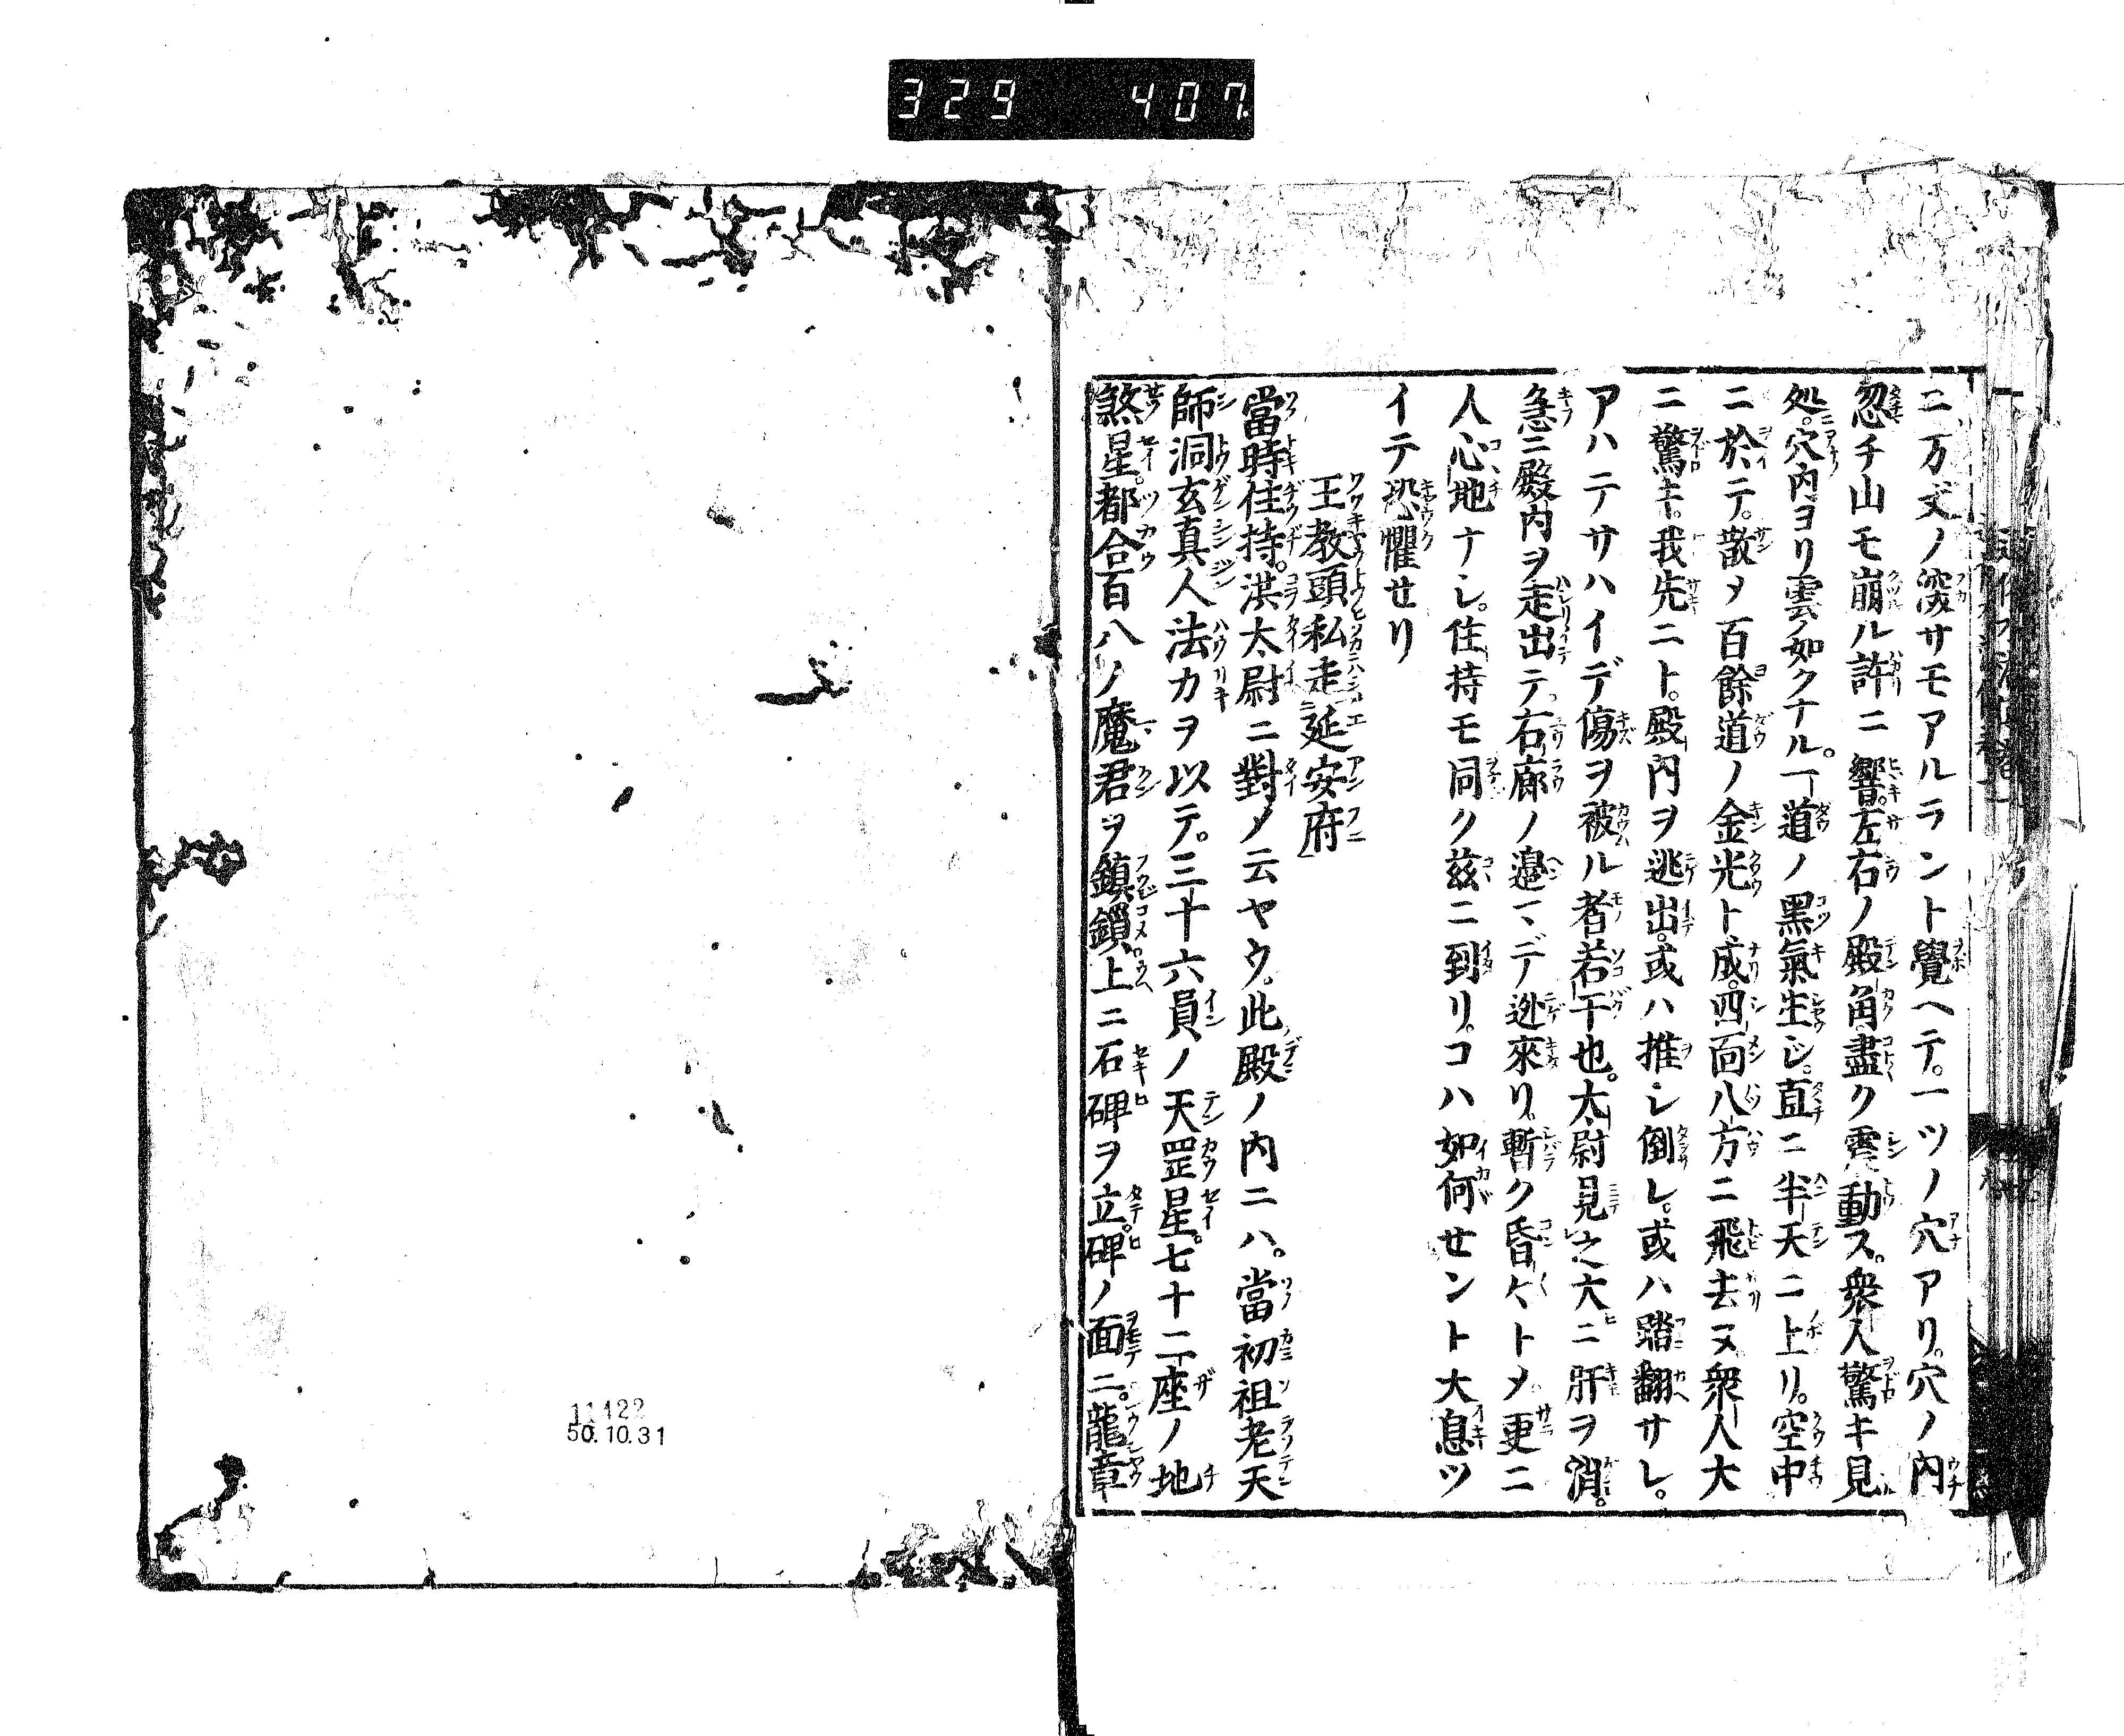 329 407
ニ万丈ノ深サモアルラント覺ヘテ。一ツノ穴アリ。穴ノ內
忽チ山モ崩ル許ニ響。左右ノ殿角盡ク震動ス。衆人驚キ見
処。穴内ヨリ雲ノ如クナル。一道ノ黑氣生ジ。直ニ半天ニ上リ。空中
ニ於テ。散メ百餘道ノ金光ト成。四面八方ニ飛去ヌ衆人大
ニ驚キ。我先ニト。殿內ヲ逃出。或ハ推シ倒レ。或ハ踏翻サレ。
アハテサハイデ傷ヲ被ル者若干也。太尉見之大ニ肝ヲ消。
急ニ殿內ヲ走出テ右廊ノ邉マデ迯來リ。暫ク昏々トメ更ニ
人心地ナシ。住持モ同ク茲ニ到リ。コハ如何セント大息ツ
イテ恐懼セリ
王教頭私走延安府
當時住持。洪太尉ニ對メ云ヤウ。此殿ノ內ニハ。當初祖老天
師洞玄真人法力ヲ以テ。三十六員ノ天罡星。七十二座ノ地
煞星。都合百八ノ魔君ヲ鎮鎖上ニ石碑ヲ立。碑ノ面ニ。龍章
11422
50.10.31